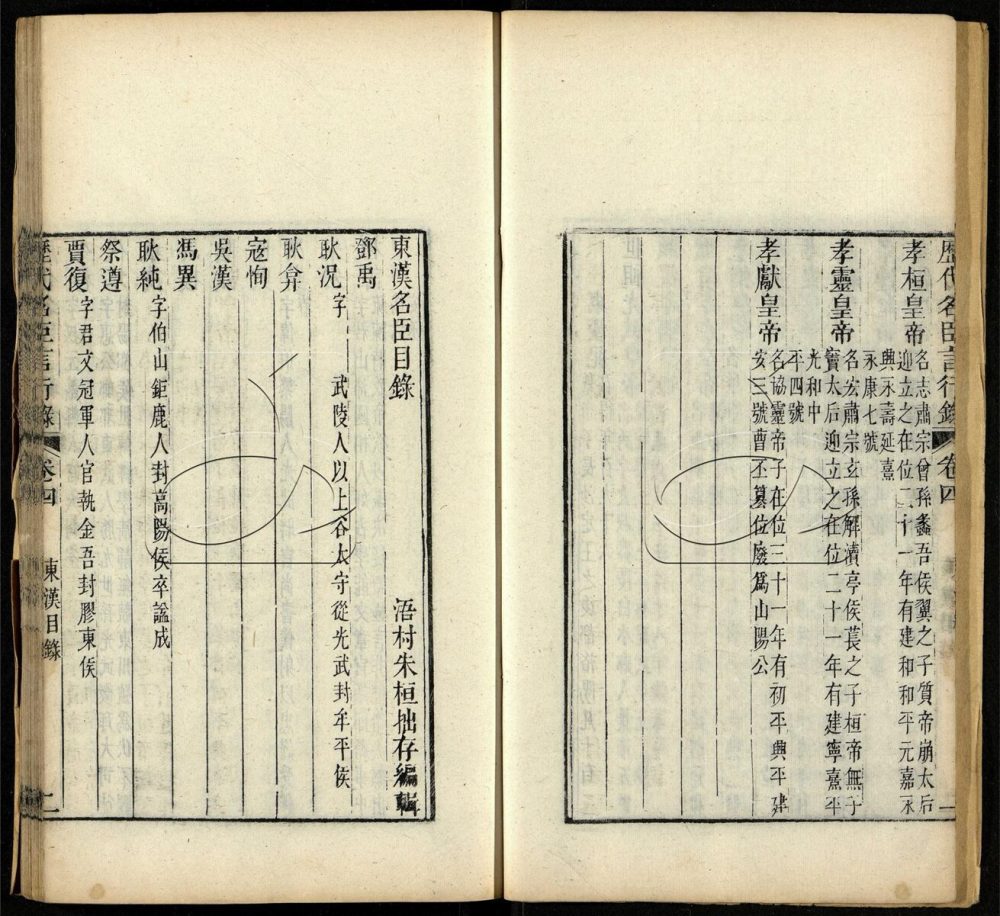 歷代名臣言行錄 卷四
孝桓皇帝 名志肅宗曾孫蠡吾侯翼之子質帝崩太后
迎立之在位二十一年有建和和平元嘉永
興永壽延熹
永康七號
孝靈皇帝 名宏肅宗玄孫解瀆亭侯萇之子桓帝無子
竇太后迎立之在位二十一年有建寧熹平
光和中
平四號
孝獻皇帝 名協靈帝子在位三十一年有初平興平建
安三號曹丕篡位廢爲山陽公
東漢名臣目錄
浯村朱桓拙存編輯
鄧禹
耿況 字 武陵人以上谷太守從光武封牟平侯
耿弇
寇恂
吳漢
馮異
耿純 字伯山鉅鹿人封高陽侯卒諡成
祭遵
賈復 字君文冠軍人官執金吾封膠東侯
歷代名臣言行錄 卷四 東漢目錄 二